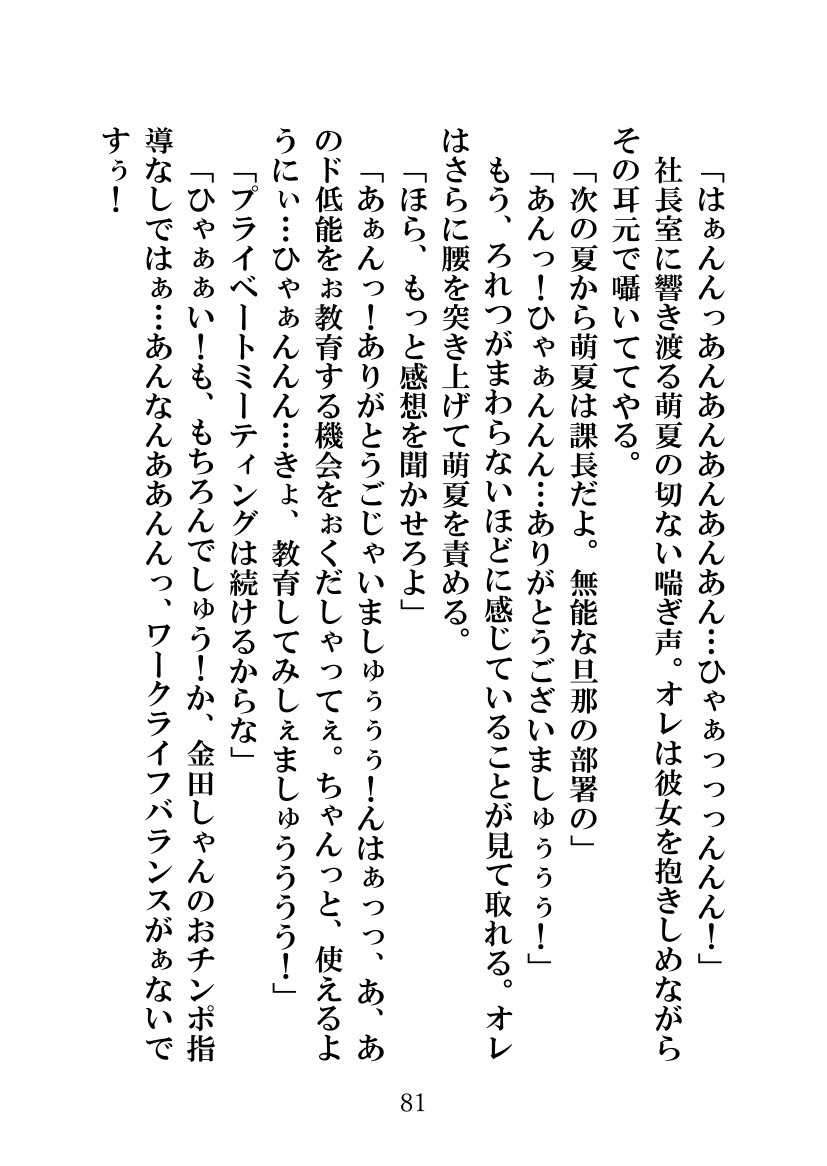 「はぁんんっあんあんあんあんあん…ひゃぁっっっんんん！」
社長室に響き渡る萌夏の切ない喘ぎ声。オレは彼女を抱きしめながら
その耳元で囁いててやる。
「次の夏から萌夏は課長だよ。無能な旦那の部署の」
「あんっ！ひゃぁんんん…ありがとうございましゅぅぅぅ！」
もう、ろれつがまわらないほどに感じていることが見て取れる。オレ
はさらに腰を突き上げて萌夏を責める。
「ほら、もっと感想を聞かせろよ」
「あぁんっ！ありがとうごじゃいましゅぅぅぅ！んはぁっっ、あ、あ
のド低能をぉ教育する機会をぉくだしゃってぇ。ちゃんっと、使えるよ
うにぃ…ひゃぁんんん…きょ、教育してみしぇましゅうううう！」
「プライベートミーティングは続けるからな」
「ひゃぁぁい！も、もちろんでしゅう！か、金田しゃんのおチンポ指
導なしではぁ…あんなんああんんっ、ワークライフバランスがぁないで
すぅ！
81